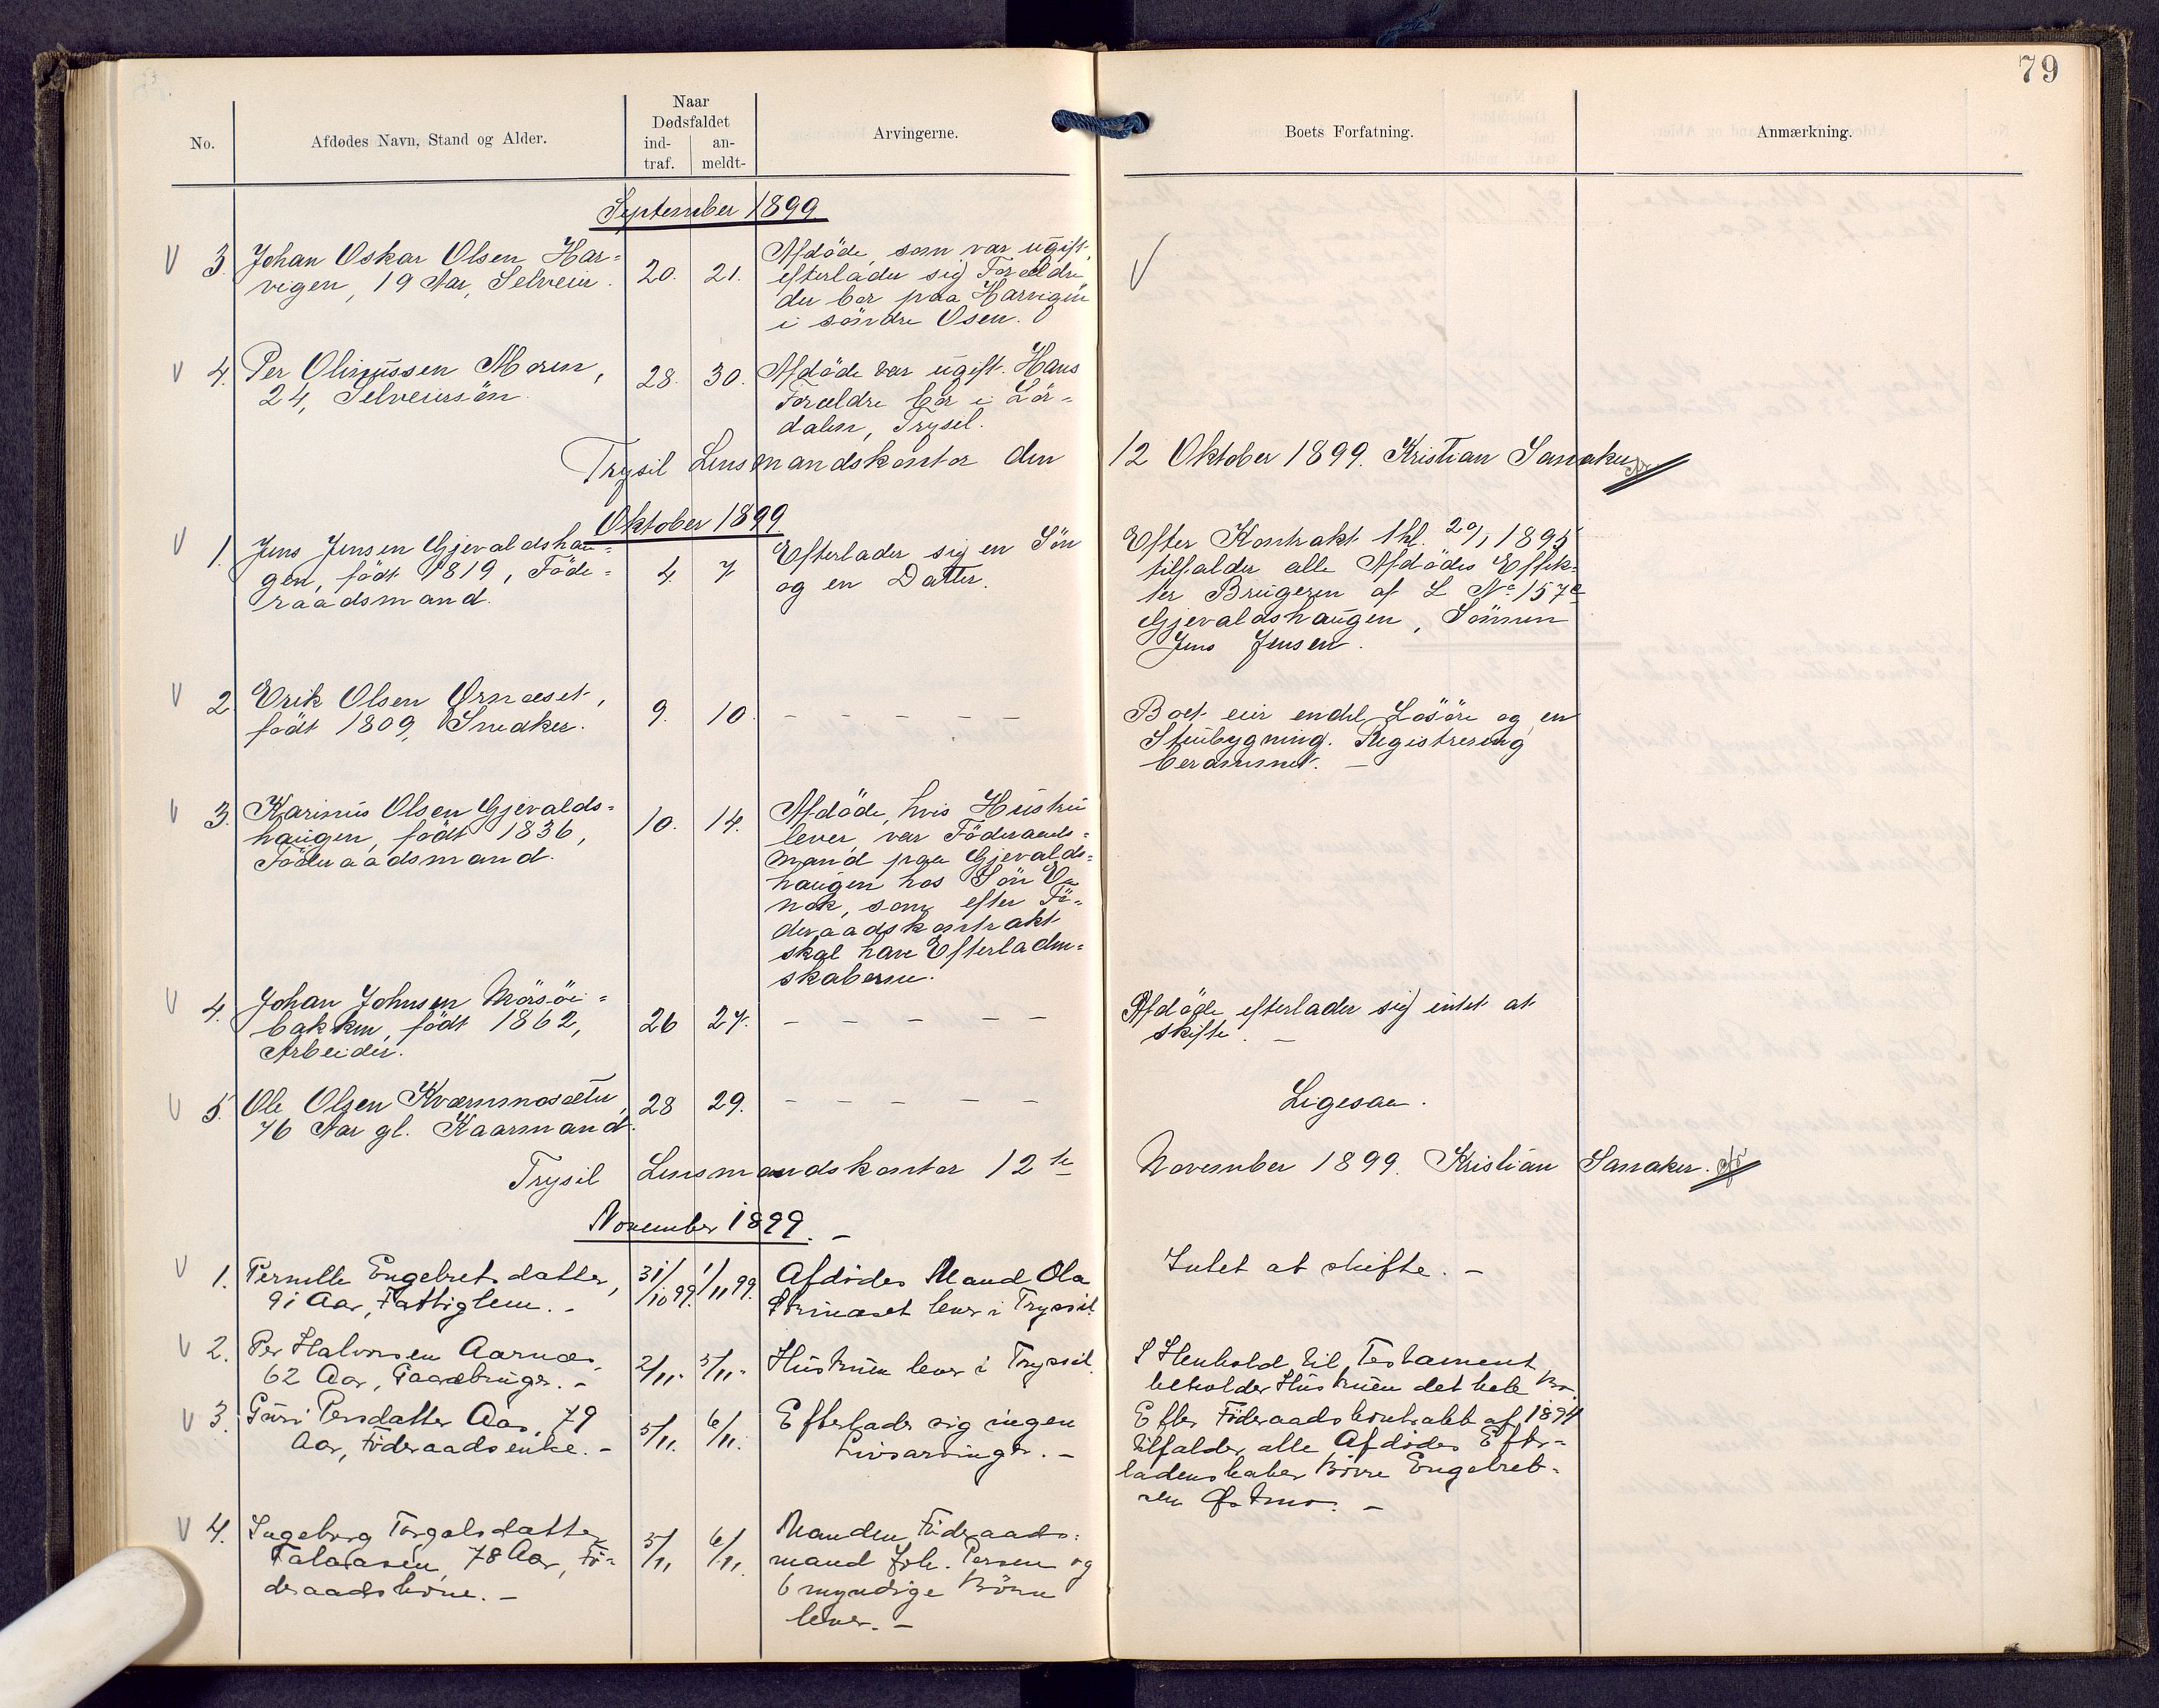 79
No.
Afdødes Navn, Stand og Alder.
Naar
Dødsfaldet
ind-
traf.
an-
meldt-
Arvingerne.
Boets Forfatning.
Anmærkning.
September 1899
3. Johan Oskar Olsen Har=
vigen, 19 Aar, Selveier.
20. 21.
Afdöde, som var ugift,
efterlader sig Forældre
der bor paa Harvigen
i söndre Osen.
4. Per Olinussen Moren,
24, Selveiersön.
28. 30.
Afdöde var ugift. Hans
Forældre bor i Lör=
dalen, Trysil.
Trysil Lensmandskontor den 12 Oktober 1899. Kristian Sanaker
Oktober 1899
1. Jens Jensen Gjevaldshau=
gen, födt 1819, Föde=
raadsmand.
4 7
Efterlader sig en Sön
og en Datter.
Efter Kontrakt thl. 20/1 1895
tilfalder alle Afdödes Effek=
ter Brugeren af L No 157
Gjevaldshaugen, Sönnen
Jens Jensen.
2. Erik Olsen Ornæset,
födt 1809, Snedker.
9. 10.
– – – – –
Boet eier endel Lösöre og en
Stuebygning. Registrering
berammet. –
3. Karinus Olsen Gjevalds=
haugen, födt 1836,
Föderaadsmand.
10. 14.
Afdöde, hvis Hustru
lever, var Föderaads=
mand paa Gjevalds=
haugen hos Sön E=
nok, som efter Fö=
deraadskontrakt
skal have Efterladen=
skaberne.
4. Johan Johnsen Mörsöi=
bakken, födt 1862,
Arbeider.
26 27.
– – – – –
Afdöde efterlader sig intet at
skifte. –
5. Ole Olsen Kværnmosæter,
76 Aar gl. Kaarmand.
28 29.
– – – – –
Ligesaa.
Trysil Lensmandskontor 12te November 1899. Kristian Sanaker.
November 1899. –
1. Pernille Engebretsdatter,
91 Aar, Fattiglem. –
31/10 99. 1/11 99.
Afdödes Mand Ola
lever i Trysil.
Intet at skifte. –
2. Per Halvorsen Aarnæs,
62 Aar, Gaardbruger. –
2/11. 5/11.
Hustruen lever i Trysil.
I Henhold til Testament
beholder Hustruen det hele Bo.
3. Guri Persdatter Aas, 79
Aar, Föderaadsenke. –
5/11. 6/11.
Efterlader sig ingen
Livsarvinger. –
Efter Föderaadskontrakt af 1894
tilfalder alle Afdödes Efter-
ladenskaber Börre Engebret-
sen Østmo. –
4. Ingeborg Torgalsdatter
Talaasen, 78 Aar, Fö-
deraadskone. –
5/11 6/11.
Manden, Föderaads=
mand Joh. Persen og
6 myndige Börn
lever. –